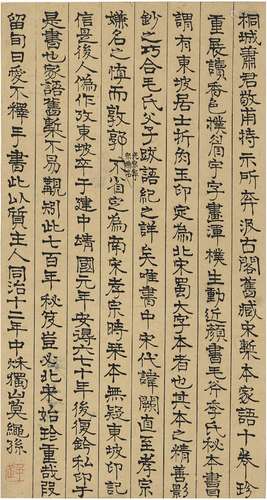 桐城蕭君敬甫持示所弆汲古閣舊臧宋槧本家語十卷珍
重展讀香色樸字畫渾樸生動近顏書毛斧季氏秘本書
謂有東坡居士折角玉印定為北宋蜀大字本者也其本之精善影
鈔之巧合毛氏父子跋語紀之詳矣唯書中宋代諱闕直至孝宗
嫌名之慎而敦郭不省定為南宋孝宗時槧本無疑東坡印記
信是後人偽作攷東坡卒于建中靖國元年安得六七十年後復鈐私印于
是書也家語舊槧不易觀矧此七百年秘笈豈必北宋始珍重哉叚
留旬日愛不釋手書此以質主人同治十二年中秋獨山莫繩孫